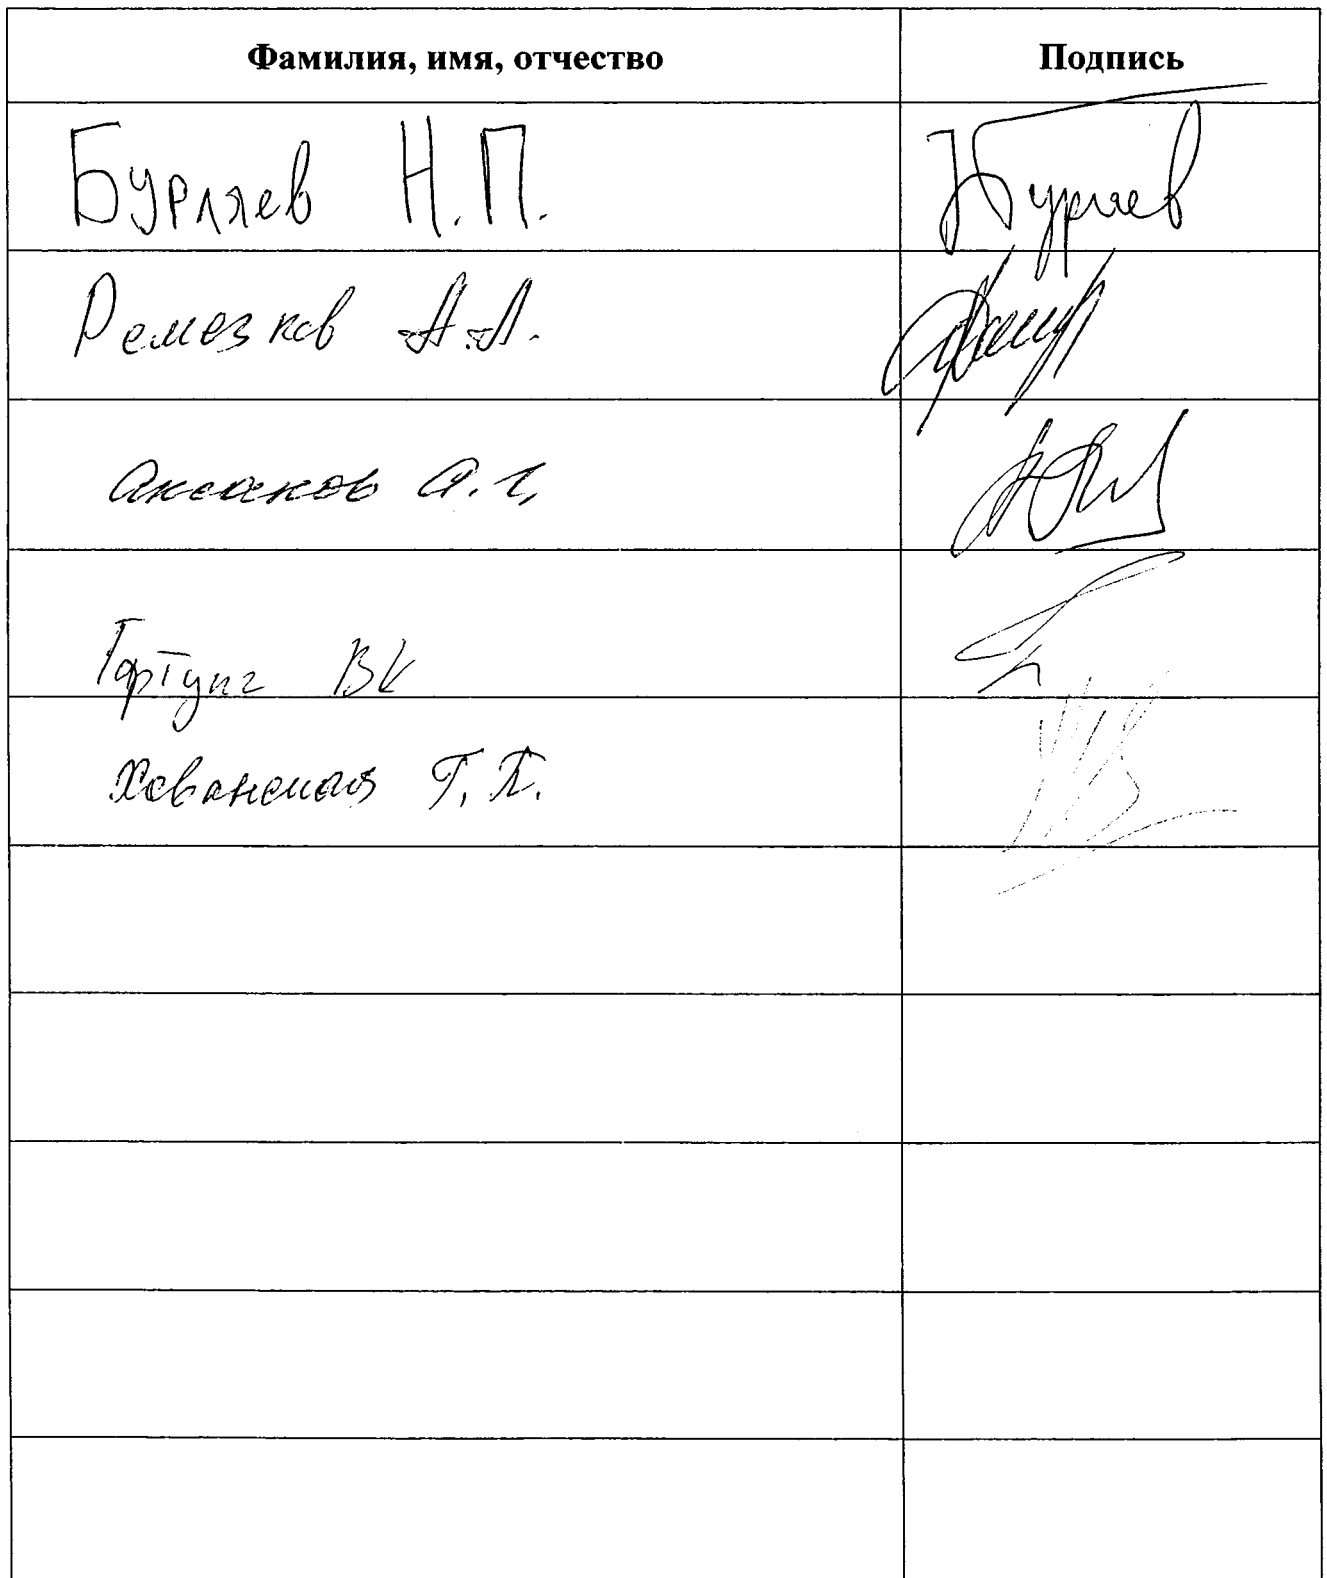 Фамилия, имя, отчество Подпись
Бурляев Н.П. Бурляев
Ремезков А.А.
Аксаков А.Г.
Гартунг ВК
Хованская Г.П.